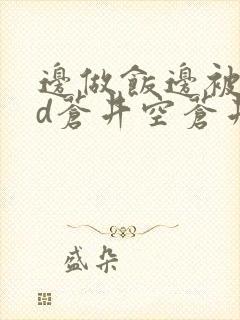 邊做飯邊被
d蒼井空蒼井
盛朵